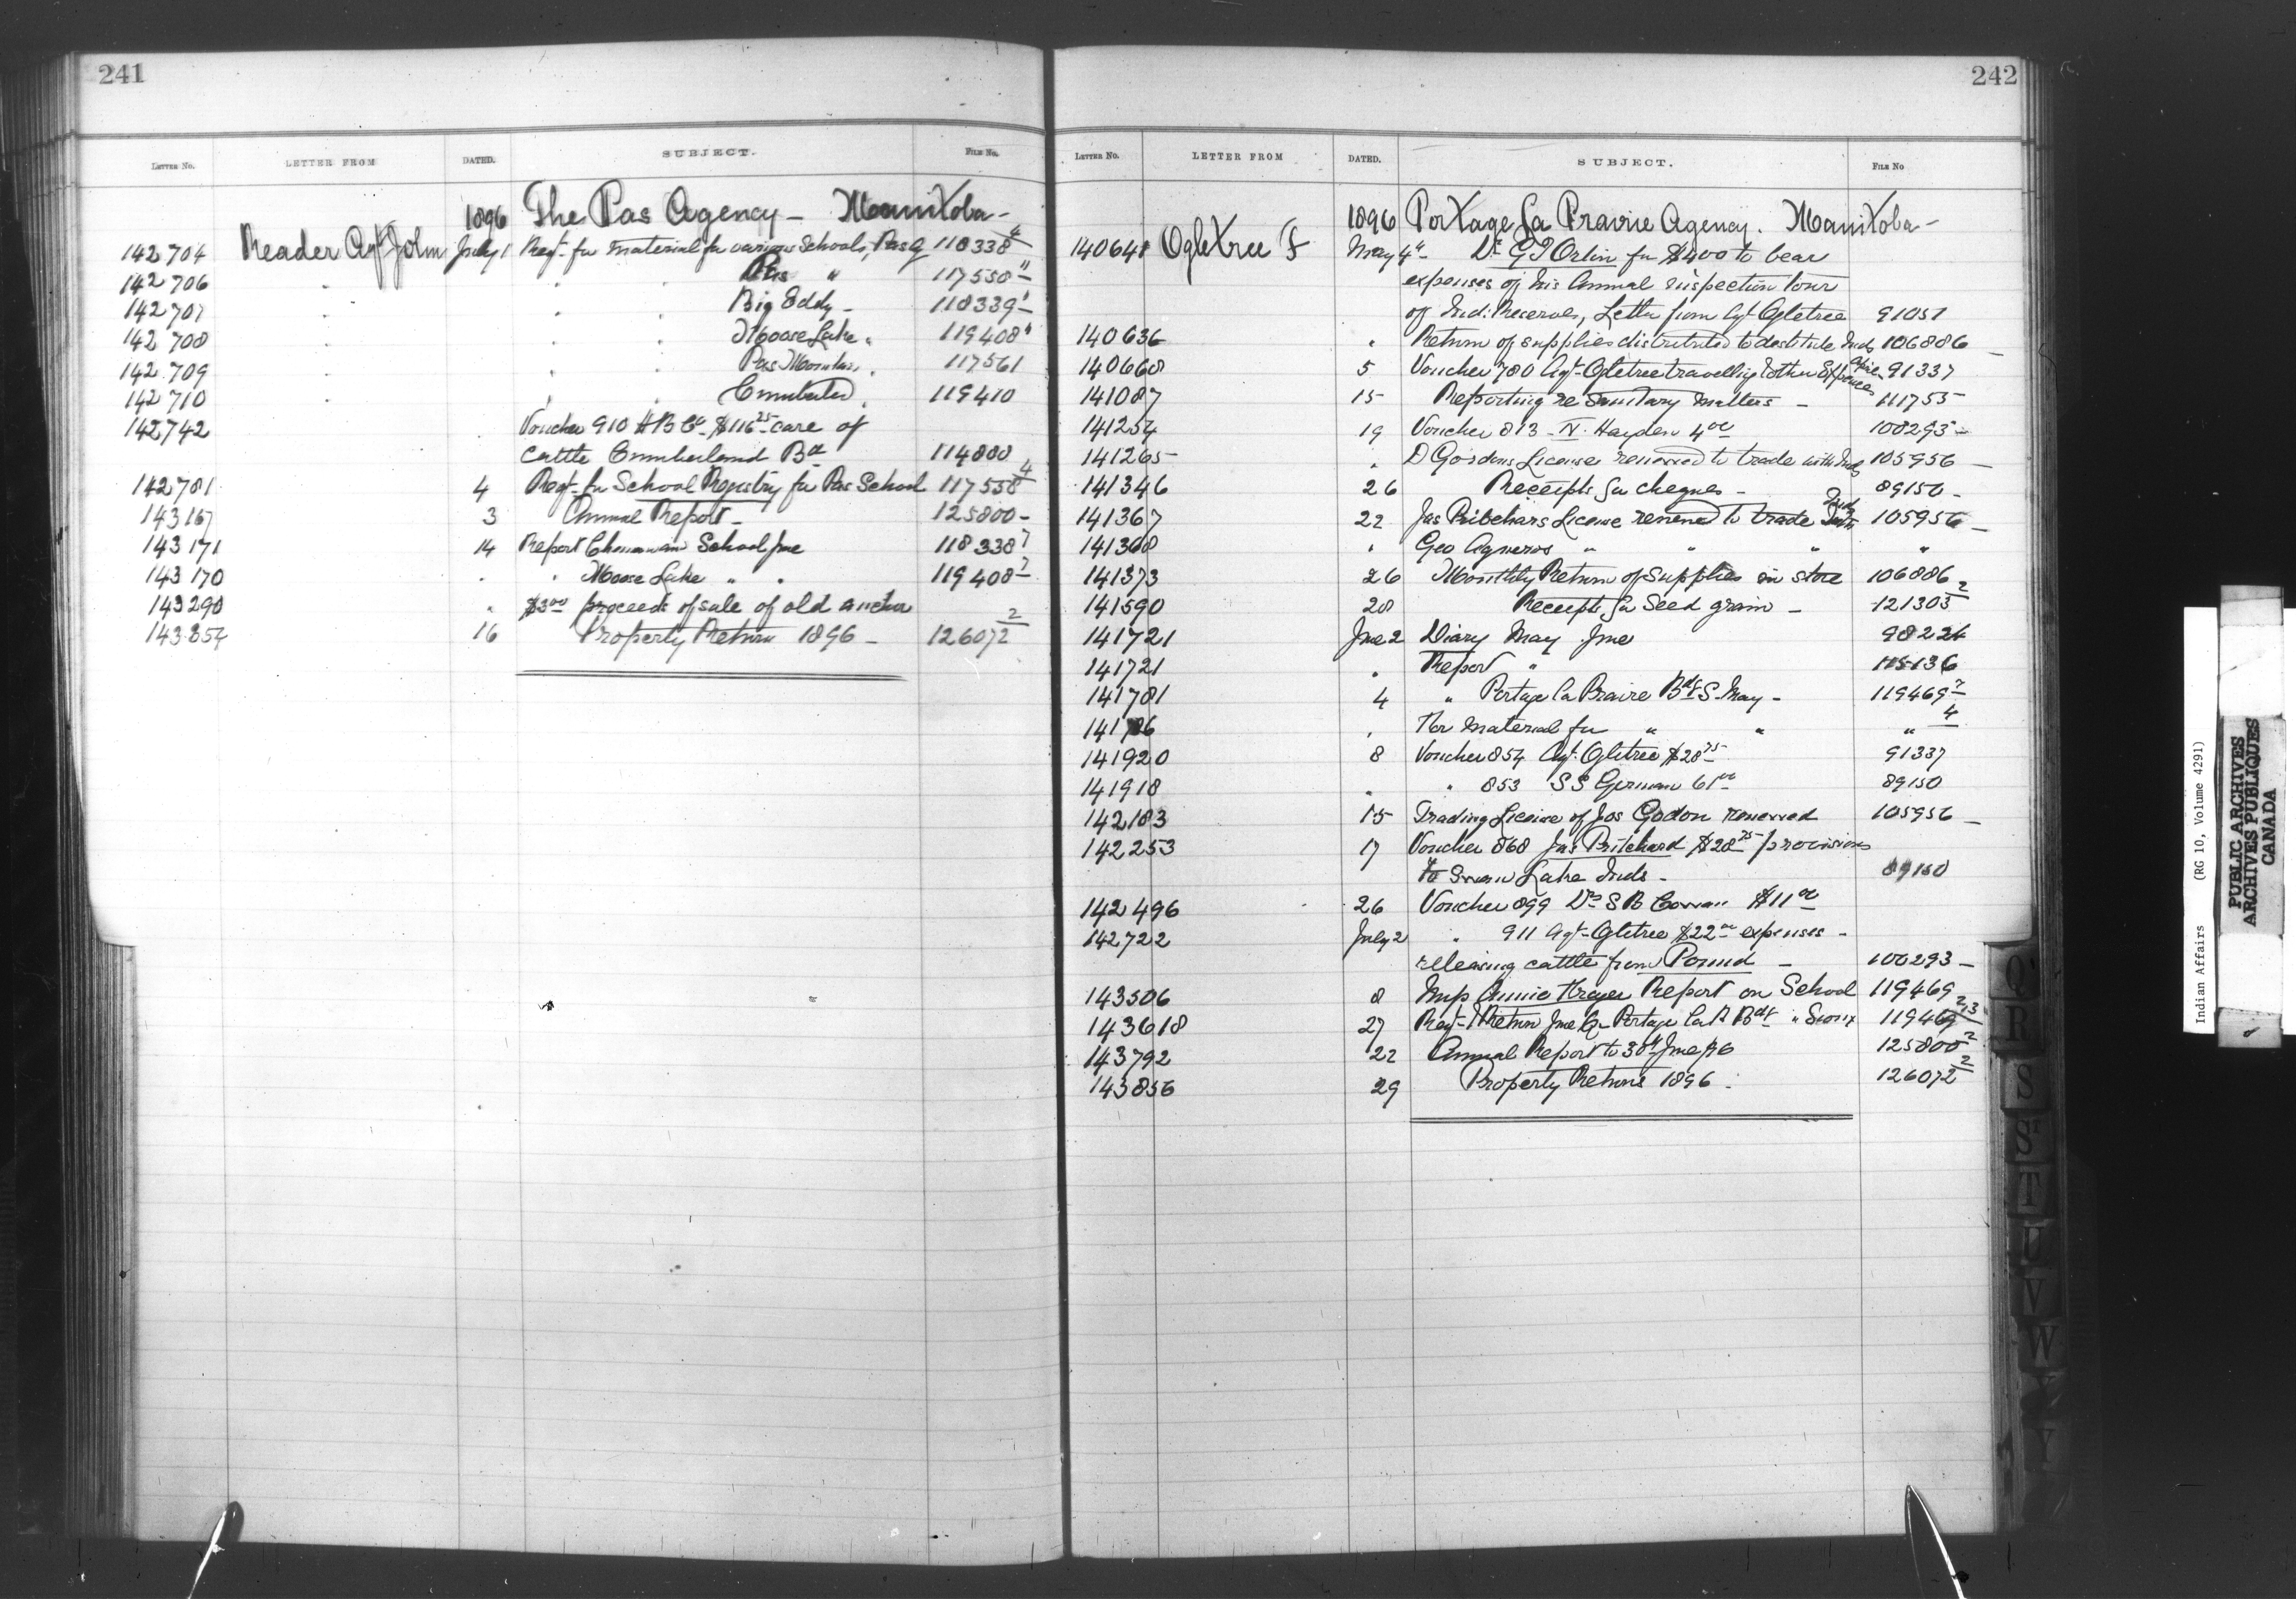 241
LETTER NO. LETTER FROM DATED. SUBJECT. FILE No.
1896 The Pas Agency - Manitoba -
142704 Reader Agt John July 1 Reqt. for material for various Schools, Pas Ag 118338 4
142706 " " Pas " 117558 11
142707 " " Big Eddy - 118339 1
142708 " " Moose Lake " 119408 4
142709 " " Pas Mountain " 117561
142710 " " Cumberland " 119410
142742 " Voucher 910 H B Co $116 25 care of
cattle Cumberland Bd 114800
142781 4 Reqt. for School Registry for Pas School 117558 4
143167 3 Annual Report - 125800 -
143171 14 Report Chemawawin School June 118338 7
143170 " " Moose Lake " " 119408 7
143290 " $3 00 proceeds of sale of old anchor
143854 16 Property Return 1896 - 126072 2
242
LETTER NO. LETTER FROM DATED. SUBJECT. FILE NO
1896 Portage La Prairie Agency. Manitoba -
140648 Ogletree F May 4 Dr G T Orton for $400 to bear
expenses of his Annual inspection tour
of Ind: Reserves, Letter from Agt Ogletree 91051
140636 " Return of supplies distributed to destitute Inds 106886 -
140668 5 Voucher 780 Agt. Ogletree travelling & other Office Expenses 91337
141087 15 Reporting re Sanitary Matters - 111755
141254 19 Voucher 813 - N. Hayden 4 00 100293 -
141265 " D Gordons License renewed to trade with Inds 105956 -
141346 26 Receipts for cheques - 89150 -
141367 22 Jas Pritchars License renewed to trade with Inds 105956 -
141368 " Geo Agnews " " " "
141373 26 Monthly Return of Supplies in store 106886
141590 28 Receipts for Seed grain - 121303 2
141721 June 2 Diary May June 98224
141721 " Report " 105136
141781 4 " Portage la Prairie Bdg S. May - 119469 7
141786 " For Material for " " " 4
141920 8 Voucher 854 Agt. Ogletree $28 75 91337
141918 " " 853 S S German 61 00 89150
142183 15 Trading License of Jos Godon renewed 105956 -
142253 17 Voucher 868 Jas Pritchard $28 75 provisions
to Swan Lake Inds - 89150
142496 26 Voucher 899 Dr S R Cowan $11 00
142722 July 2 " 911 Agt. Ogletree $22 00 expenses -
releasing cattle from Pound - 100293 -
143506 8 Miss Annie Fraser Report on School 119469
143618 27 Reqt. & Return June Qr Portage La P. Bdg " Sioux 119469 2,3
143792 22 Annual Report to 30th June 96 125800 2
143856 29 Property Return 1896 - 126072 2
Q
R
S
ST
T
U
V
W
Y
Indian Affairs (RG 10, Volume 4291)
PUBLIC ARCHIVES
ARCHIVES PUBLIQUES
CANADA